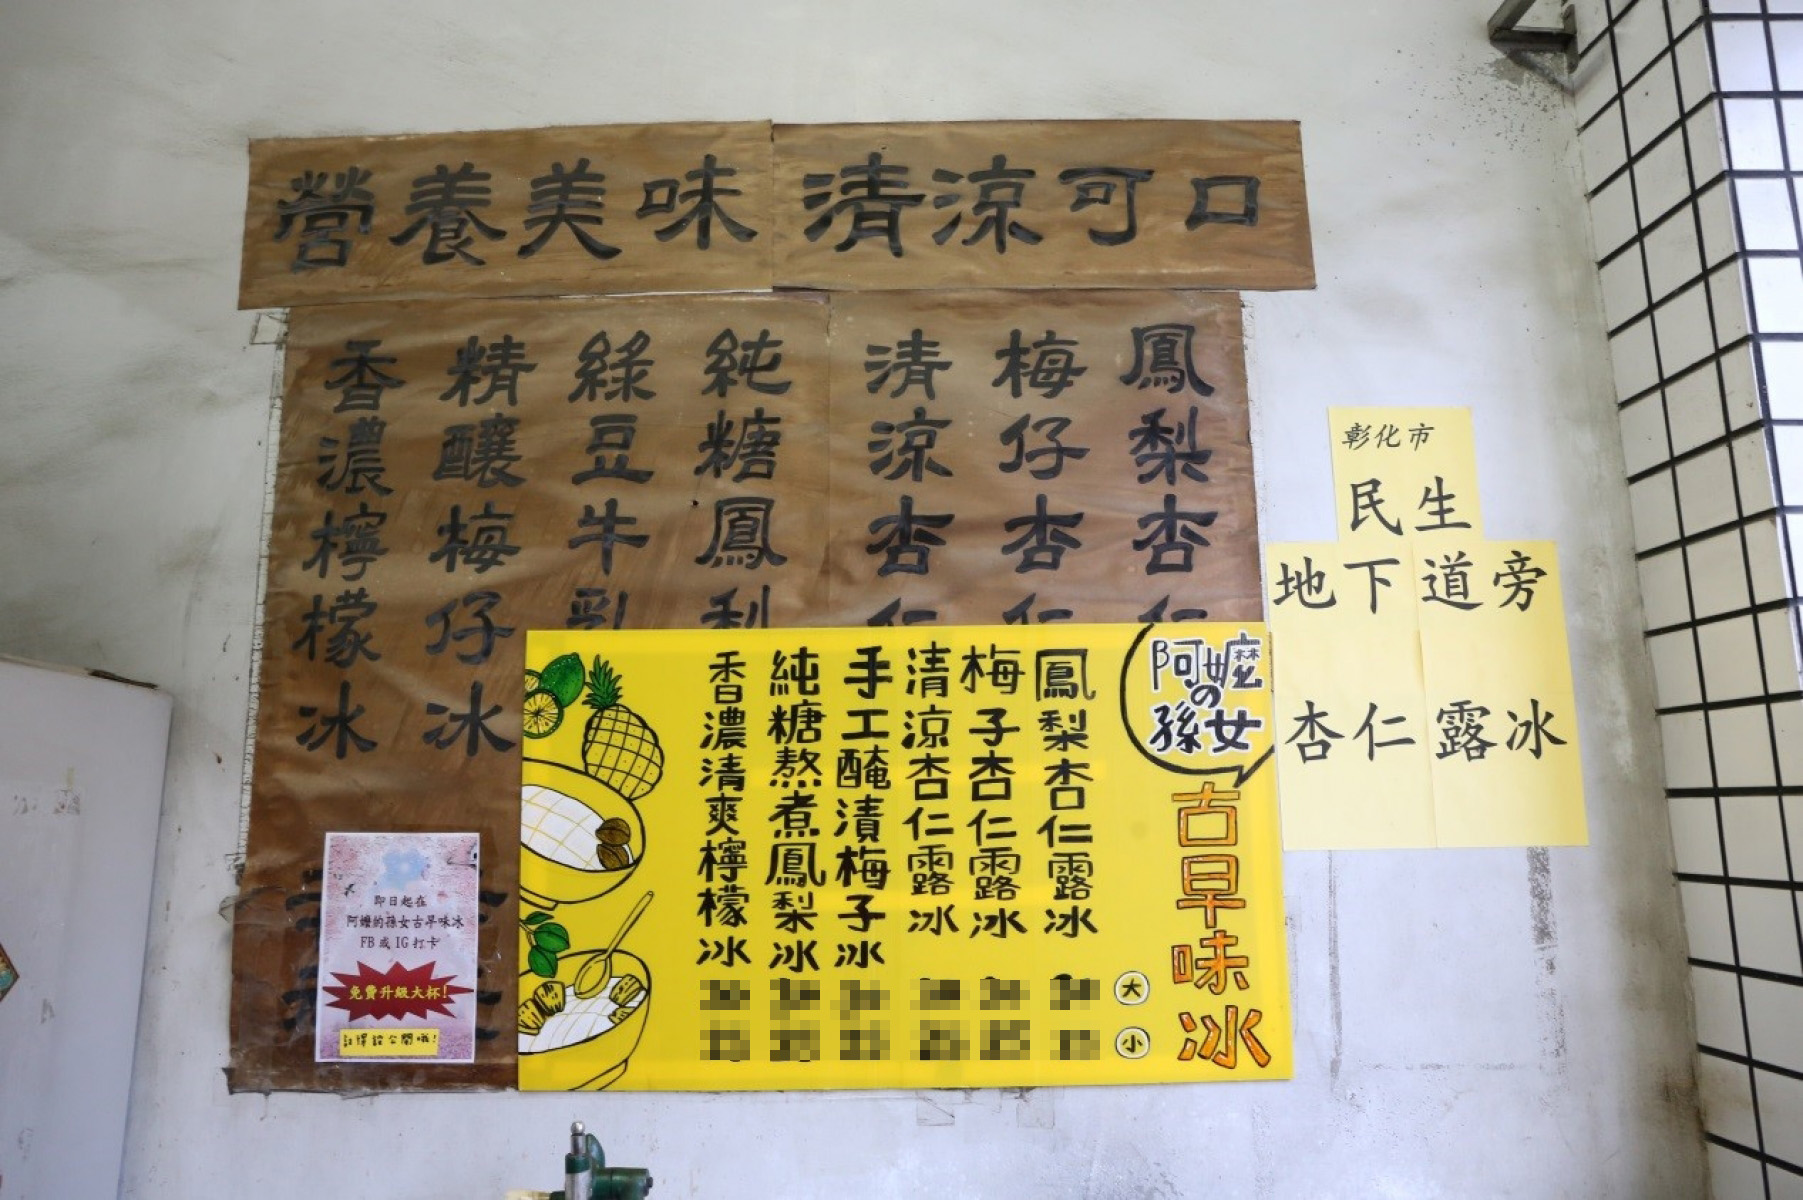 營養美味 清涼可口
鳳梨杏仁
梅仔杏仁
清涼杏仁
純糖鳳梨
綠豆牛乳
精釀梅仔冰
香濃檸檬冰
彰化市
民生
地下道旁
杏仁露冰
阿嬤
の
孫女
古早味冰
鳳梨杏仁露冰
梅子杏仁露冰
清涼杏仁露冰
手工醃漬梅子冰
純糖熬煮鳳梨冰
香濃清爽檸檬冰
大
小
即日起在
阿嬤的孫女古早味冰
FB或IG打卡
免費升級大杯!
記得設公開哦!